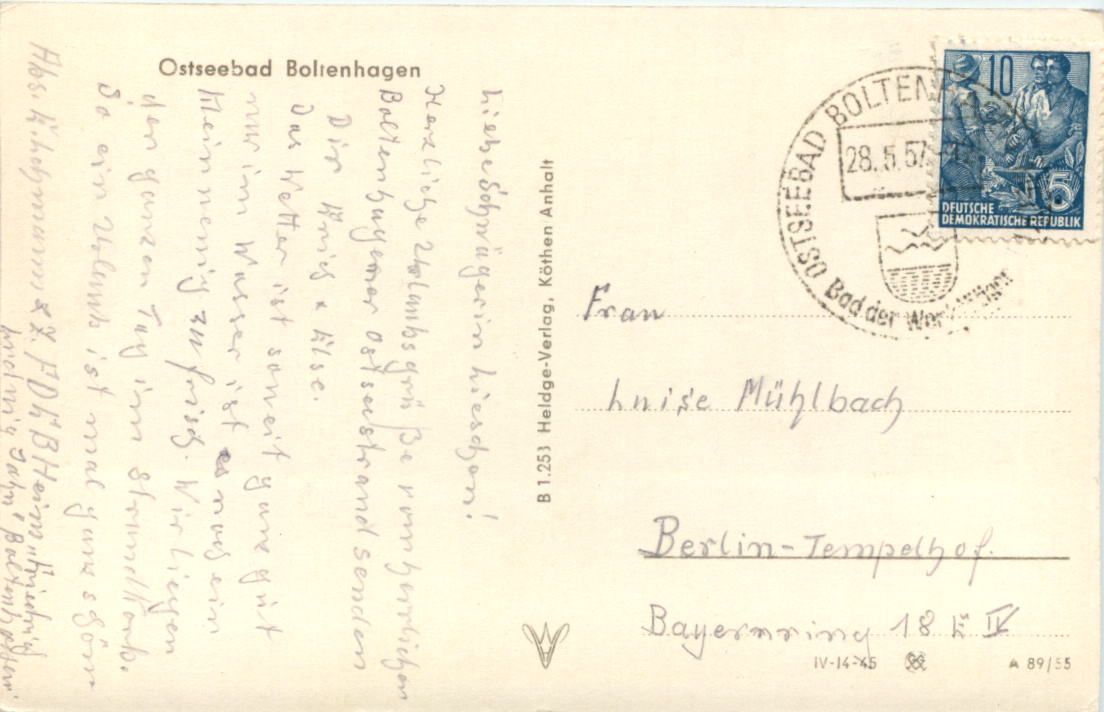 Ostseebad Boltenhagen
Liebe Schwägerin Lieschen!
Herzliche Urlaubsgrüße vom herrlichen
Boltenhagener Ostseestrand senden
Dir
& Else.
Das Wetter ist soweit ganz gut
nur im Wasser ist es noch ein
klein wenig zu frisch. Wir liegen
den ganzen Tag im Strandkorb.
So ein Urlaub ist mal ganz schön
Abs. K. z.Z. FDGB Heim "Friedrich
Ludwig Jahn" Boltenhagen
B 1.253 Heldge-Verlag, Köthen Anhalt
OSTSEEBAD BOLTENHAGEN
28.5.57
Bad der Werktätigen
10
5
DEUTSCHE
DEMOKRATISCHE REPUBLIK
Frau
Luise Mühlbach
Berlin-Tempelhof.
Bayernring 18 IV
IV-14-45
A 89/55